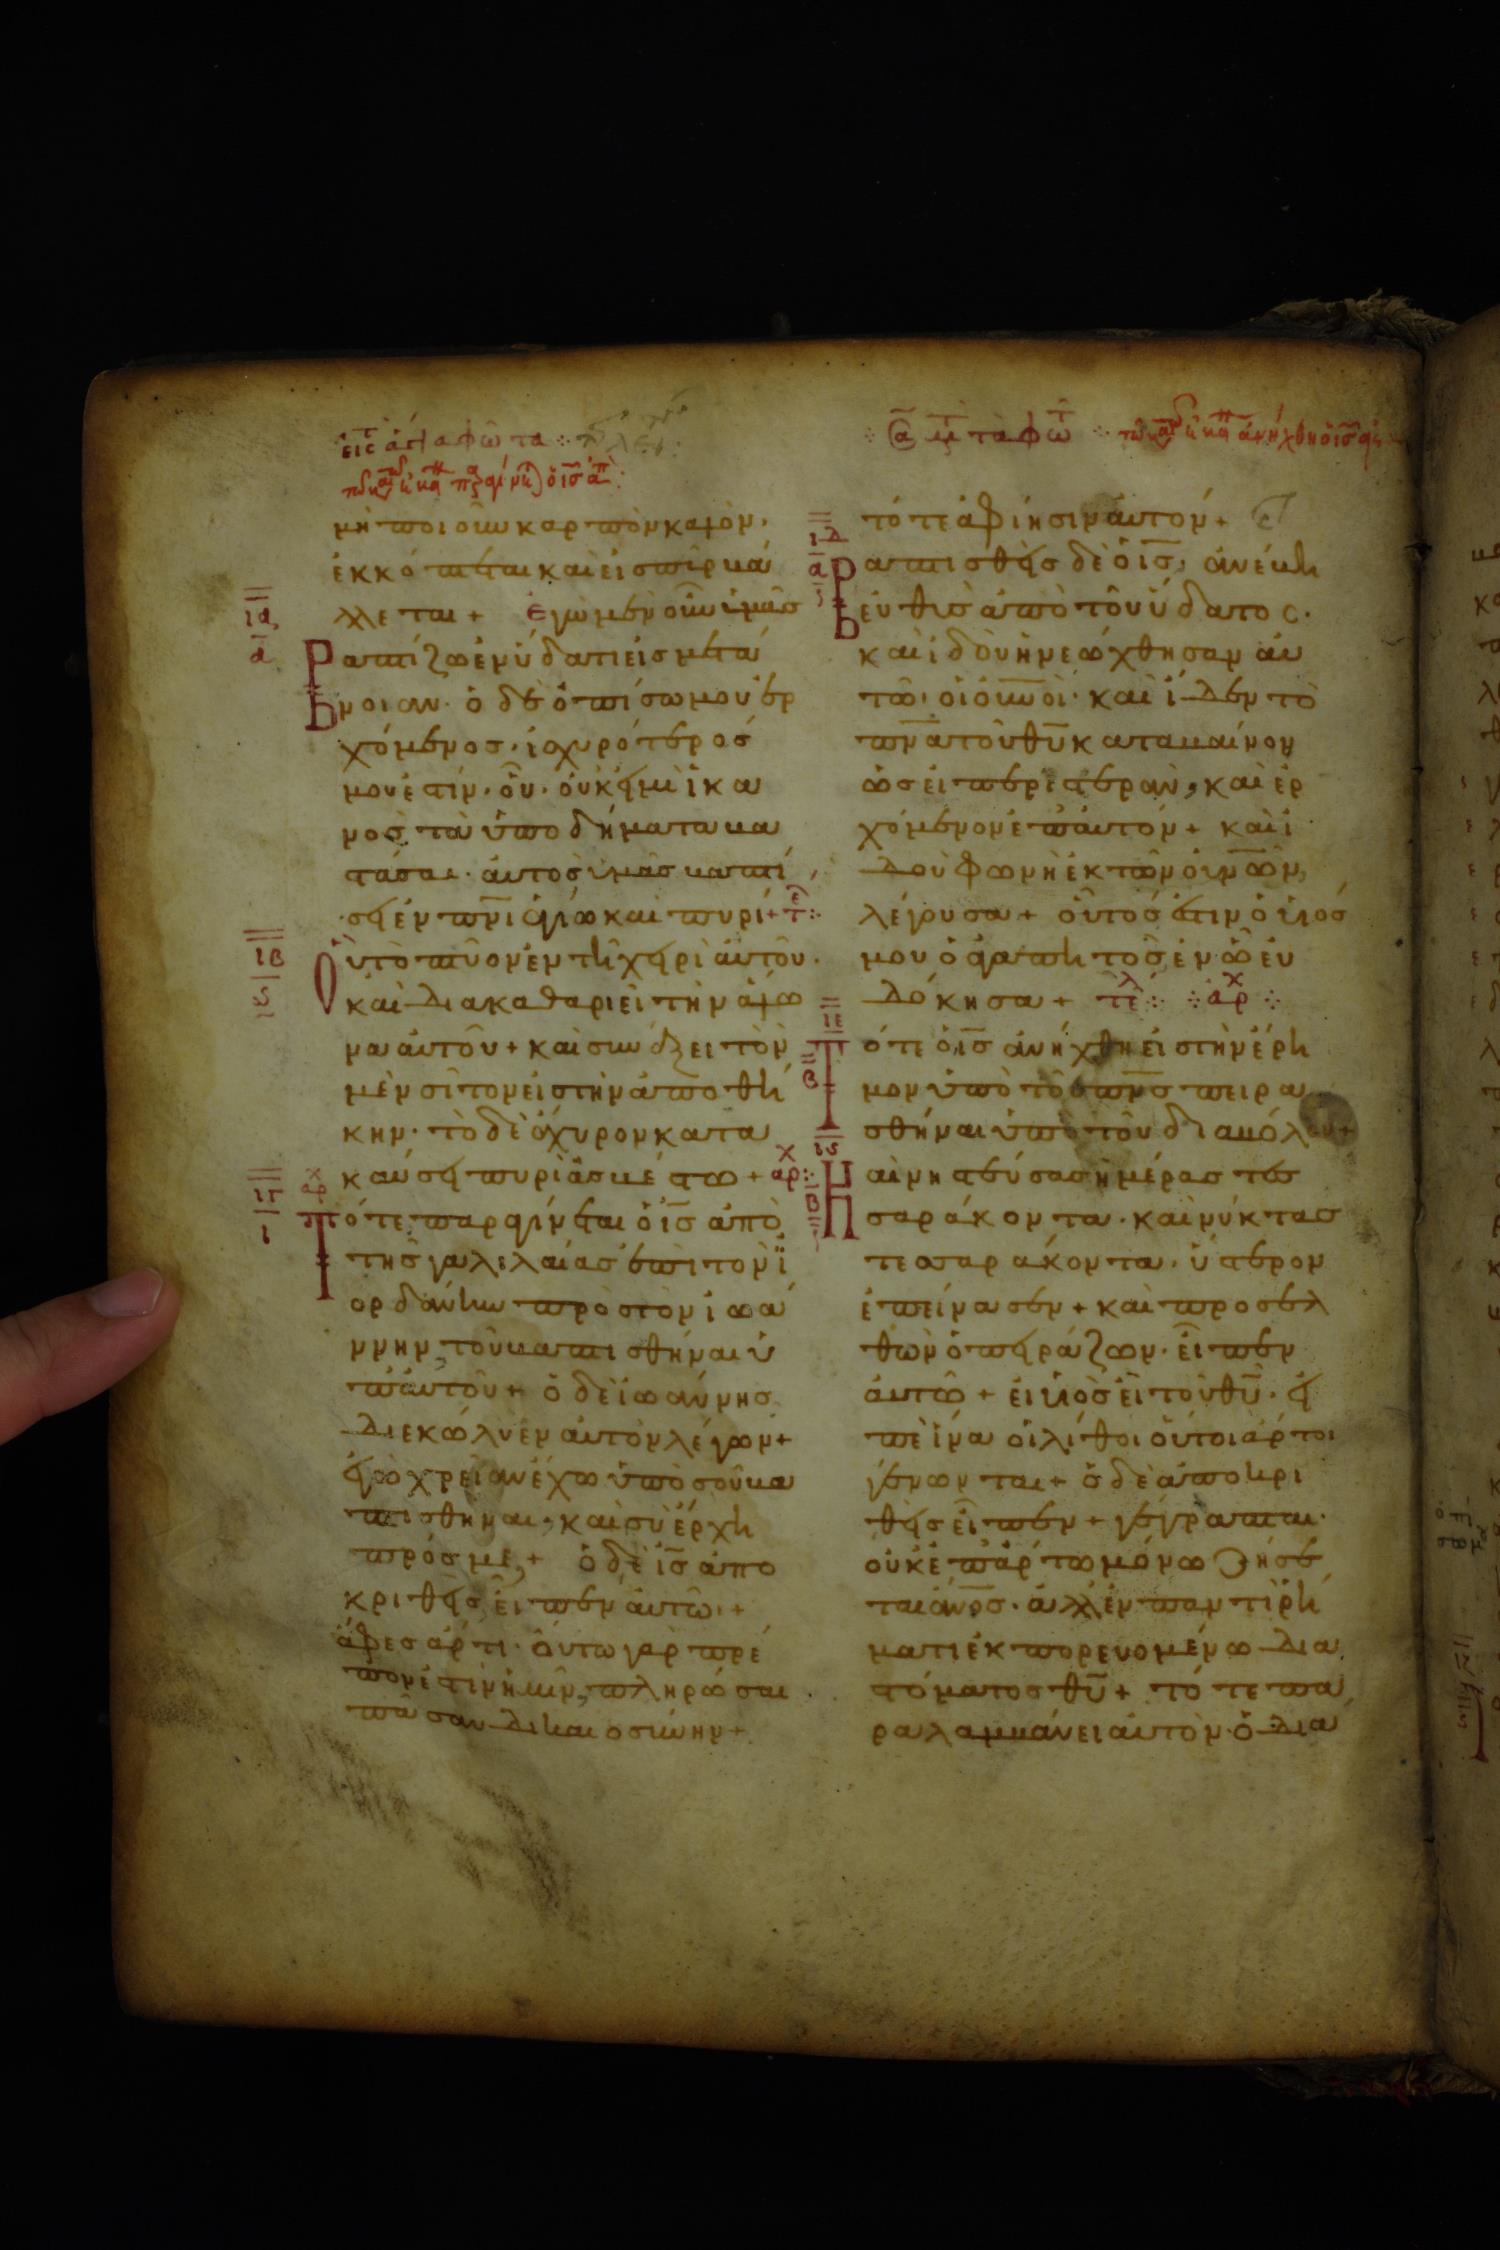 εἰς τ ἁγ τα φῶτα
μὴ ποιοῦν καρπὸν καλὸν,
ἐκκόπτεται καὶ εἰς πῦρ βά
λλεται + Ἐγὼ μὲν οὖν ὑμᾶσ
ια
α
Βαπτίζω ἐν ὕδατι εἰς μετά
νοιαν· ὁ δὲ ὀπίσω μου ἐρ
χόμενοσ· ἰσχυρότεροσ
μου ἐστίν· οὗ· οὐκ εἰμὶ ἱκα
νὸσ τὰ ὑποδήματα βα
στάσαι· αὐτὸσ ὑμᾶσ βαπτί
σει ἐν πνι ἁγίω καὶ πυρί +
ιβ
Οὗ τὸ πτύον ἐν τῆ χειρὶ αὐτοῦ·
καὶ διακαθαριεῖ τὴν ἅλω
να αὐτοῦ + καὶ συνάξει τὸν
μὲν σῖτον εἰς τὴν ἀποθή
κην· τὸ δὲ ἄχυρον κατα
καύσει πυρὶ ἀσβέστω + αρχ
ιγ
ι
αρχ
Τότε παραγίνεται ὁ ισ ἀπὸ
τῆσ γαλιλαίασ ἐπὶ τὸν ϊ
ορδάνην πρὸσ τὸν ἰωά
ννην, τοῦ βαπτισθῆναι ὑ
π' αὐτοῦ + ὁ δὲ ἰωάννησ
διεκώλυεν αὐτὸν λέγων +
ἐγὼ χρείαν ἔχω ὑπὸ σοῦ βα
πτισθῆναι, καὶ σὺ ἔρχη
πρόσ με, + ὁ δὲ ισ ἀπο
κριθεὶσ εἶπεν αὐτῶ· +
ἄφεσ ἄρτι· οὕτω γὰρ πρέ
πον ἐστὶν ἡμῖν, πληρῶσαι
πᾶσαν δικαιοσύνην +
τότε ἀφίησιν αὐτόν +
ιδ
α
Βαπτισθεὶσ δὲ ὁ ισ, ἀνέβη
εὐθὺσ ἀπὸ τοῦ ὕδατοσ·
καὶ ἰδοὺ ἠνεώχθησαν αὐ
τῶ· οἱ οὐνοὶ· καὶ ἴδεν τὸ
πνα τοῦ θυ καταβαῖνον
ὡσεὶ περιστερὰν, καὶ ἐρ
χόμενον ἐπ' αὐτόν + καὶ ἰ
δοὺ φωνὴ ἐκ τῶν οὐνῶν,
λέγουσα + οὗτόσ ἐστιν ὁ υἱόσ
μου ὁ ἀγαπητὸσ ἐν ὧ εὐ
δόκησα + τελ αρχ
ιε
β
Τότε ὁ ισ ἀνήχθη εἰς τὴν ἔρη
μον ὑπὸ τοῦ πνσ πειρα
σθῆναι ὑπὸ τοῦ διαβόλου +
ιϛ
β
Καὶ νηστεύσασ ἡμέρασ τεσ
σαράκοντα· καὶ νύκτασ
τεσσαράκοντα· ὕστερον
ἐπείνασεν + καὶ προσελ
θὼν ὁ πειράζων· εἶπεν
αὐτῶ + εἰ υἱὸσ εἶ τοῦ θυ· εἰ
πὲ ἵνα οἱ λίθοι οὗτοι ἄρτοι
γένωνται + ὁ δὲ ἀποκρι
θεὶσ εἶπεν + γέγραπται·
οὐκ ἐπ' ἄρτω μόνω ζήσε
ται ἄνοσ· ἀλλ' ἐν παντὶ ῥή
ματι ἐκπορευομένω δια
στόματοσ θυ + τότε πα
ραλαμβάνει αὐτὸν ὁ διά